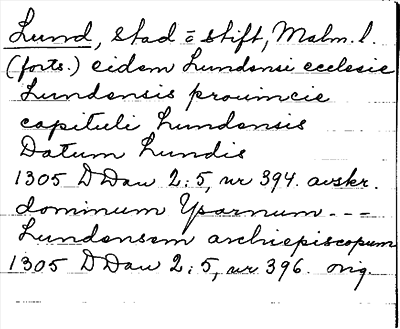 Lund, stad o stift, Malm. l.
(forts.) eidem Lundensi ecclesie
Lundensis prouincie
capituli Lundensis
Datum Lundis
1305 DDan 2:5, nr 394. avskr.
dominum Yparnum - - -
Lundensem archiepiscopum
1305 DDan 2:5, nr 396. orig.